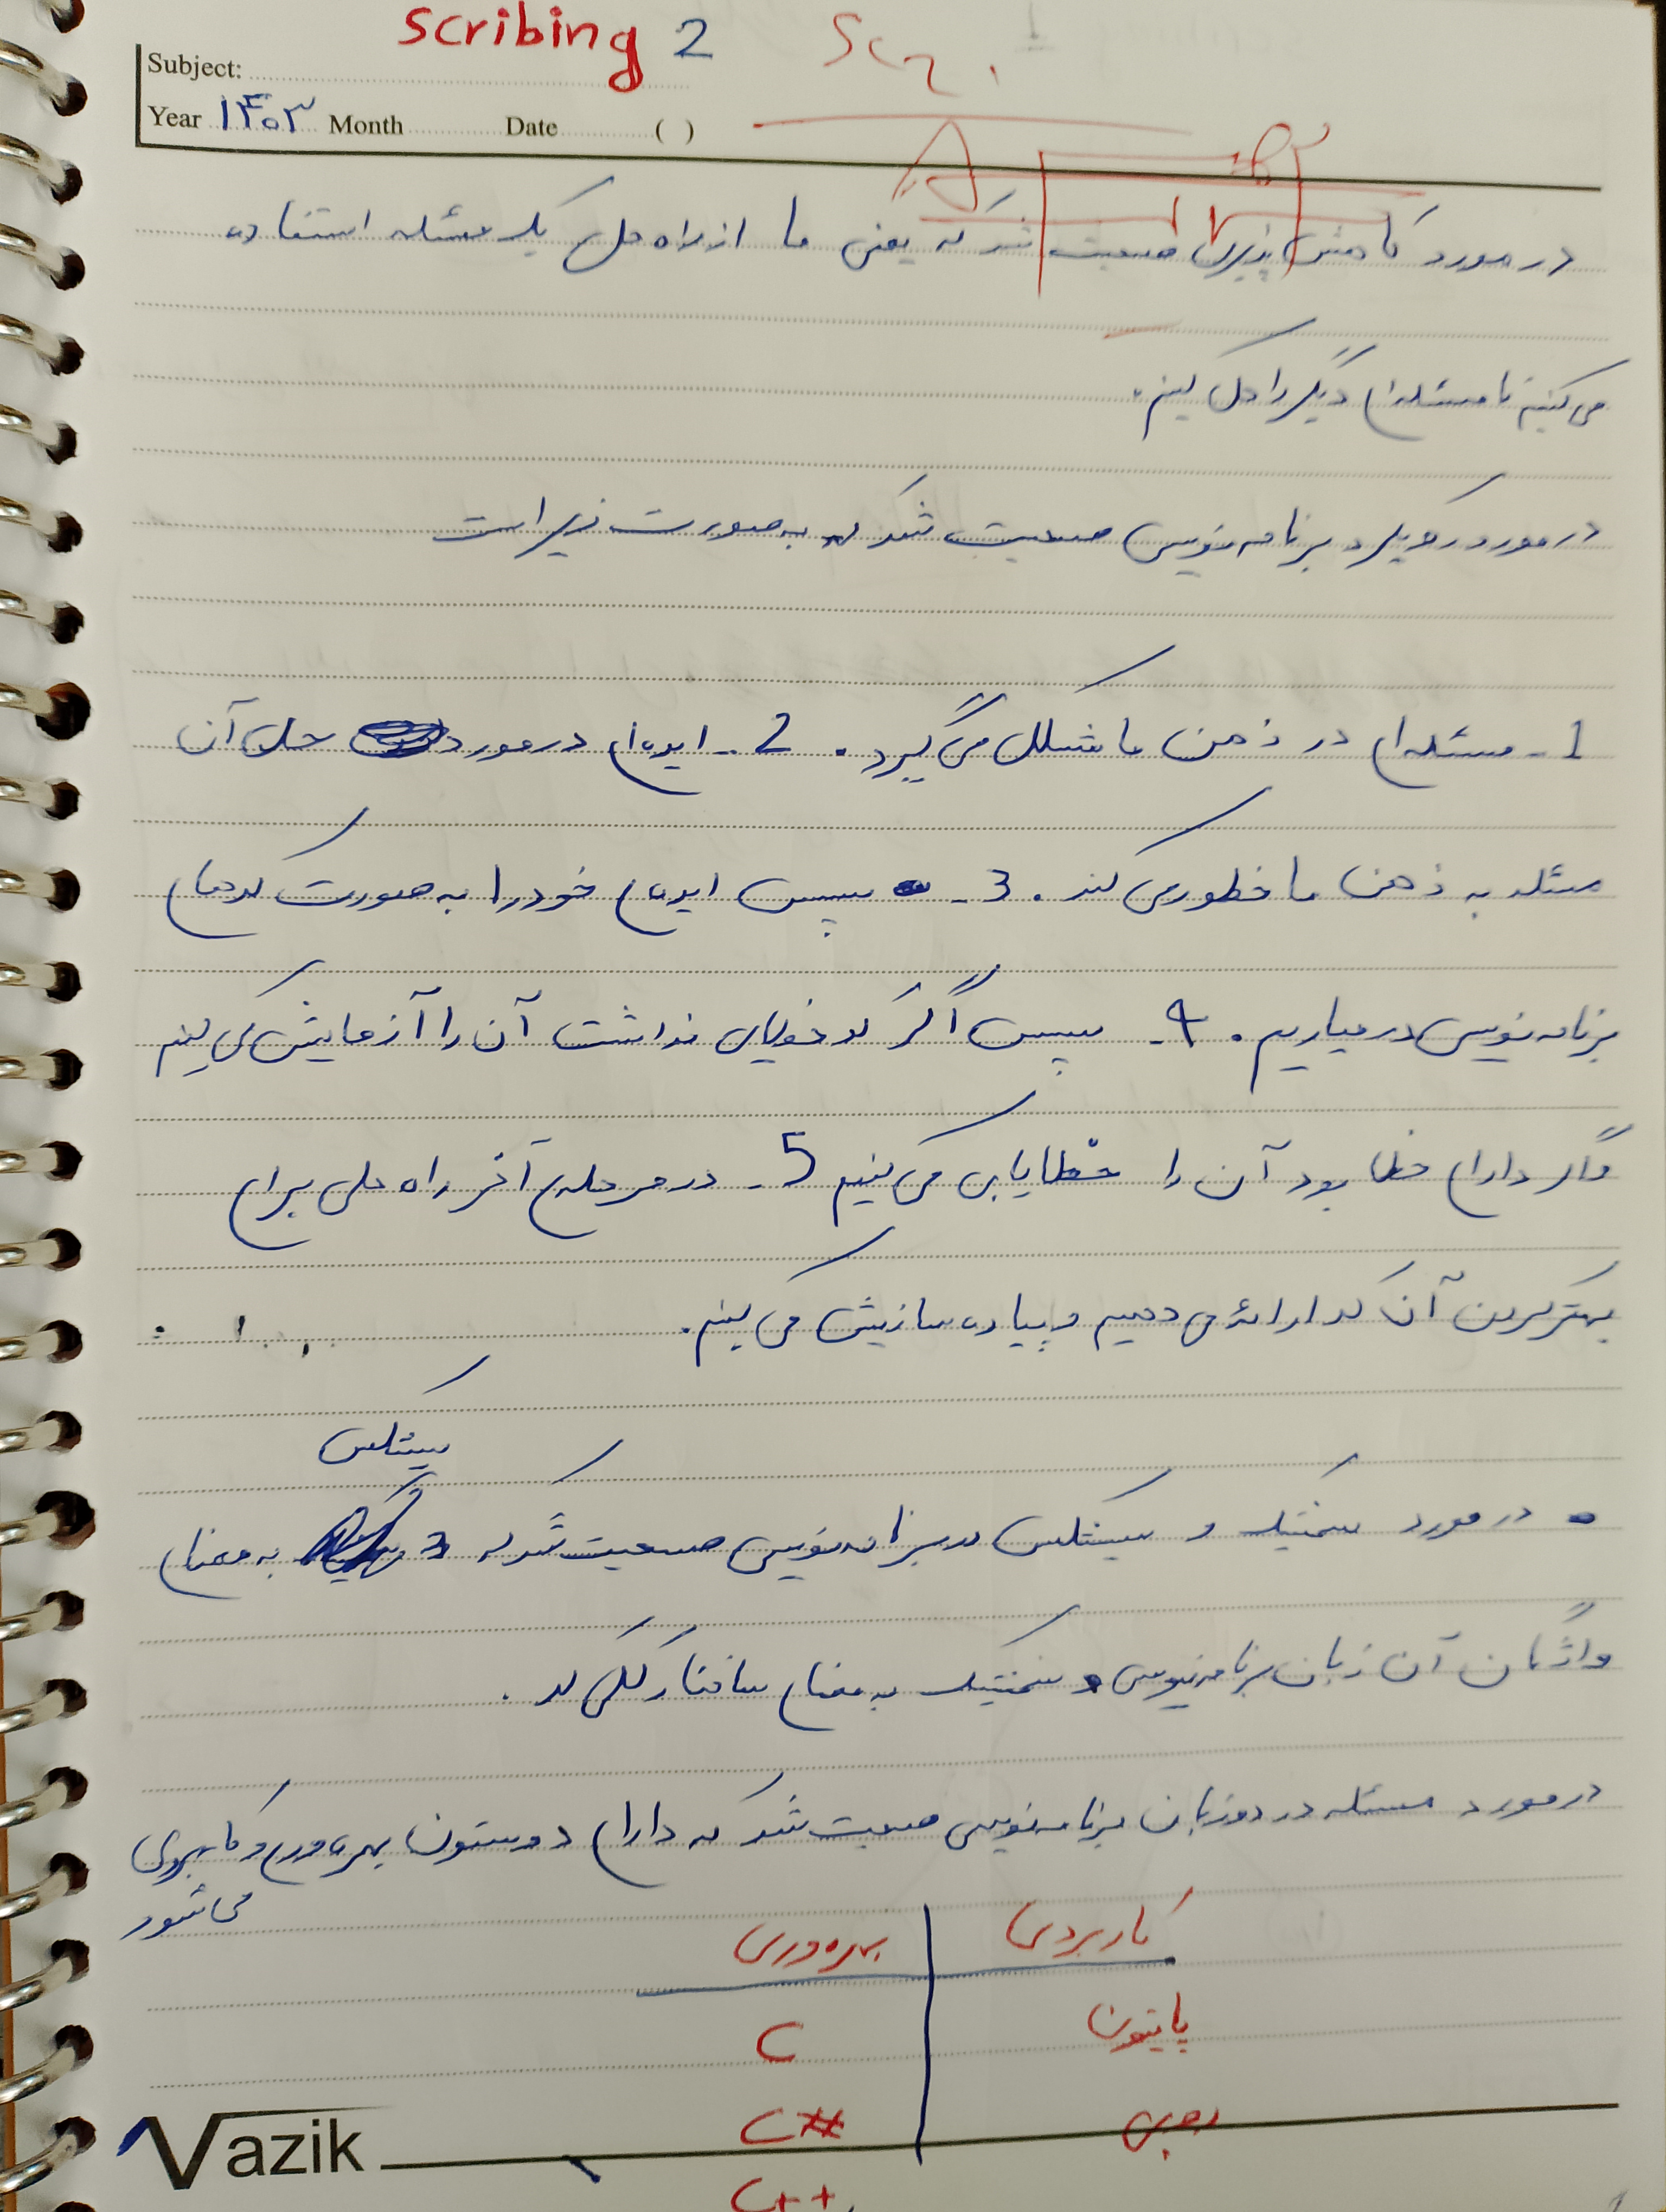 scribing 2
Subject:
Year ۱۴۰۳ Month Date ( )
در مورد کاهش پذیری صحبت شد که یعنی ما از راه حل یک مسئله استفاده
می کنیم تا مسئله ای دیگر را حل کنیم.
در مورد رویکرد برنامه نویسی صحبت شد که به صورت زیر است
1- مسئله ای در ذهن ما شکل می گیرد. 2- ایده ای در مورد حل آن
مسئله به ذهن ما خطور می کند. 3- سپس ایده ی خود را به صورت کدهای
برنامه نویسی در میاریم. 4- سپس اگر کد خطایی نداشت آن را آزمایش می کنیم
و اگر دارای خطا بود آن را خطایابی می کنیم 5- در مرحله ی آخر راه حلی برای
بهتر کردن آن کد ارائه می دهیم و پیاده سازیش می کنیم.
سینتکس
• در مورد سمنتیک و سینتکس در برنامه نویسی صحبت شد که به معنای
واژگان آن زبان برنامه نویسی و سمنتیک به معنای ساختار کلی کد.
در مورد مسئله در دو زبان برنامه نویسی صحبت شد که دارای دو ستون بهره وری و کاربردی
می شود
کاربردی بهره وری
پایتون C
C#
C++
Vazik